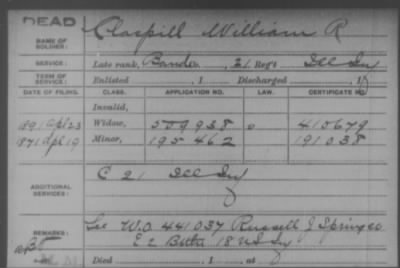 DEAD
NAME OF SOLDIER: Claspill William R
SERVICE: Late rank, Band, 21 Reg't Ill Inf
TERM OF SERVICE: Enlisted , 1 Discharged , 1
DATE OF FILING. CLASS. APPLICATION NO. LAW. CERTIFICATE NO.
Invalid,
1891 Apl 23 Widow, 509938 410679
1871 Apl 19 Minor, 195 462 191038
ADDITIONAL SERVICES: C 21 Ill Inf
REMARKS: See W.O. 441037 Russell J Springer
E 2 Battn 18 US Inf
Died , 1 , at